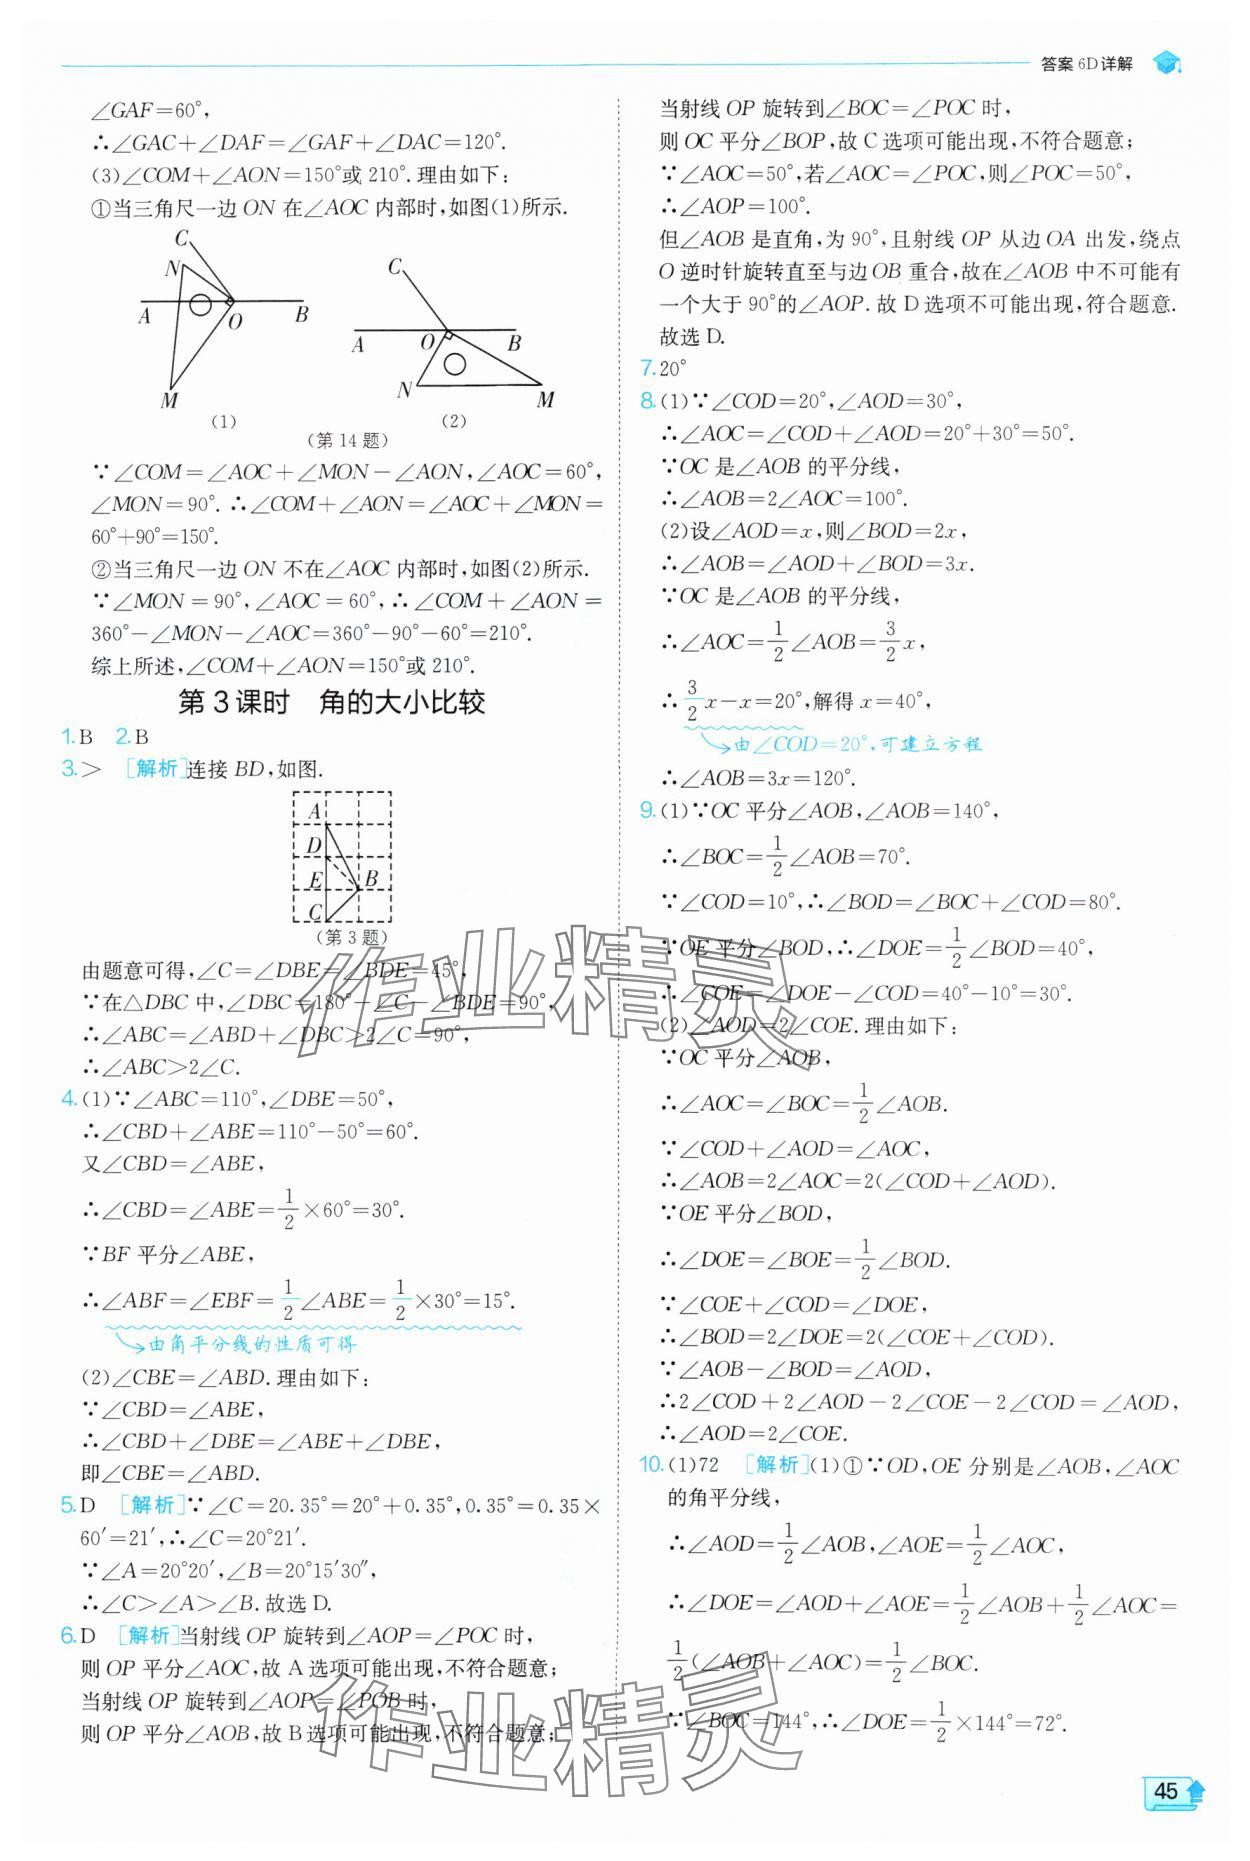 答案 6D 详解
∠GAF=60°,
∴∠GAC+∠DAF=∠GAF+∠DAC=120°.
(3)∠COM+∠AON=150°或 210°.理由如下:
①当三角尺一边 ON 在∠AOC 内部时,如图(1)所示.
C
N
A
O
B
M
(1)
C
A
O
B
N
M
(2)
(第 14 题)
∵∠COM=∠AOC+∠MON-∠AON,∠AOC=60°,
∠MON=90°.∴∠COM+∠AON=∠AOC+∠MON=
60°+90°=150°.
②当三角尺一边 ON 不在∠AOC 内部时,如图(2)所示.
∵∠MON=90°,∠AOC=60°,∴∠COM+∠AON=
360°-∠MON-∠AOC=360°-90°-60°=210°.
综上所述,∠COM+∠AON=150°或 210°.
第 3 课时 角的大小比较
1. B 2. B
3. > [解析]连接 BD,如图.
A
D
E
B
C
(第 3 题)
由题意可得,∠C=∠DBE=∠BDE=45°,
∵在△DBC 中,∠DBC=180°-∠C-∠BDE=90°,
∴∠ABC=∠ABD+∠DBC>2∠C=90°,
∴∠ABC>2∠C.
4. (1)∵∠ABC=110°,∠DBE=50°,
∴∠CBD+∠ABE=110°-50°=60°.
又∠CBD=∠ABE,
∴∠CBD=∠ABE=1/2×60°=30°.
∵BF 平分∠ABE,
∴∠ABF=∠EBF=1/2∠ABE=1/2×30°=15°.
由角平分线的性质可得
(2)∠CBE=∠ABD.理由如下:
∵∠CBD=∠ABE,
∴∠CBD+∠DBE=∠ABE+∠DBE,
即∠CBE=∠ABD.
5. D [解析]∵∠C=20.35°=20°+0.35°,0.35°=0.35×
60′=21′,∴∠C=20°21′.
∵∠A=20°20′,∠B=20°15′30″,
∴∠C>∠A>∠B.故选 D.
6. D [解析]当射线 OP 旋转到∠AOP=∠POC 时,
则 OP 平分∠AOC,故 A 选项可能出现,不符合题意;
当射线 OP 旋转到∠AOP=∠POB 时,
则 OP 平分∠AOB,故 B 选项可能出现,不符合题意;
当射线 OP 旋转到∠BOC=∠POC 时,
则 OC 平分∠BOP,故 C 选项可能出现,不符合题意;
∵∠AOC=50°,若∠AOC=∠POC,则∠POC=50°,
∴∠AOP=100°.
但∠AOB 是直角,为 90°,且射线 OP 从边 OA 出发,绕点
O 逆时针旋转直至与边 OB 重合,故在∠AOB 中不可能有
一个大于 90°的∠AOP.故 D 选项不可能出现,符合题意.
故选 D.
7. 20°
8. (1)∵∠COD=20°,∠AOD=30°,
∴∠AOC=∠COD+∠AOD=20°+30°=50°.
∵OC 是∠AOB 的平分线,
∴∠AOB=2∠AOC=100°.
(2)设∠AOD=x,则∠BOD=2x,
∴∠AOB=∠AOD+∠BOD=3x.
∵OC 是∠AOB 的平分线,
∴∠AOC=1/2∠AOB=3/2x,
∴3/2x-x=20°,解得 x=40°,
由∠COD=20°,可建立方程
∴∠AOB=3x=120°.
9. (1)∵OC 平分∠AOB,∠AOB=140°,
∴∠BOC=1/2∠AOB=70°.
∵∠COD=10°,∴∠BOD=∠BOC+∠COD=80°.
∵OE 平分∠BOD,∴∠DOE=1/2∠BOD=40°,
∴∠COE=∠DOE-∠COD=40°-10°=30°.
(2)∠AOD=2∠COE.理由如下:
∵OC 平分∠AOB,
∴∠AOC=∠BOC=1/2∠AOB.
∵∠COD+∠AOD=∠AOC,
∴∠AOB=2∠AOC=2(∠COD+∠AOD).
∵OE 平分∠BOD,
∴∠DOE=∠BOE=1/2∠BOD.
∵∠COE+∠COD=∠DOE,
∴∠BOD=2∠DOE=2(∠COE+∠COD).
∵∠AOB-∠BOD=∠AOD,
∴2∠COD+2∠AOD-2∠COE-2∠COD=∠AOD,
∴∠AOD=2∠COE.
10. (1)72 [解析](1)①∵OD,OE 分别是∠AOB,∠AOC
的角平分线,
∴∠AOD=1/2∠AOB,∠AOE=1/2∠AOC,
∴∠DOE=∠AOD+∠AOE=1/2∠AOB+1/2∠AOC=
1/2(∠AOB+∠AOC)=1/2∠BOC.
∵∠BOC=144°,∴∠DOE=1/2×144°=72°.
作业精灵
作业精灵
45